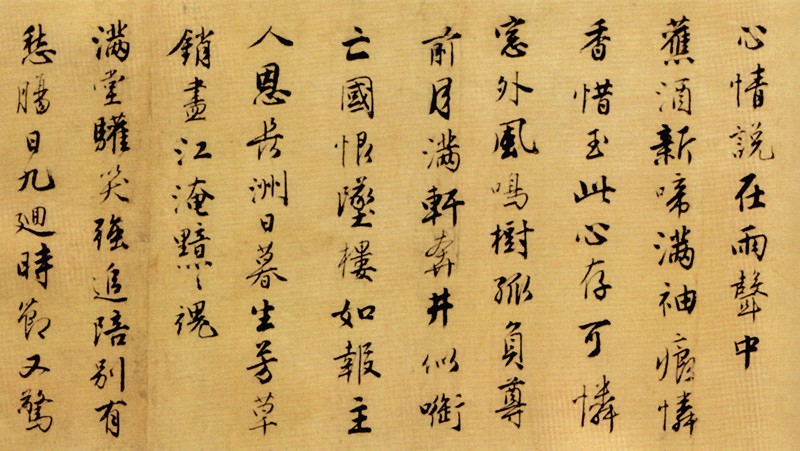 心情說在雨聲中
蕉酒新啼滿袖痕憐
香惜玉此心存可憐
窓外風鳴樹孤負尊
前月滿軒奔井似銜
亡國恨墜樓如報主
人恩長洲日暮生芳草
銷盡江淹黯〻魂
滿堂驩笑強追陪別有
愁腸日九迴時節又驚